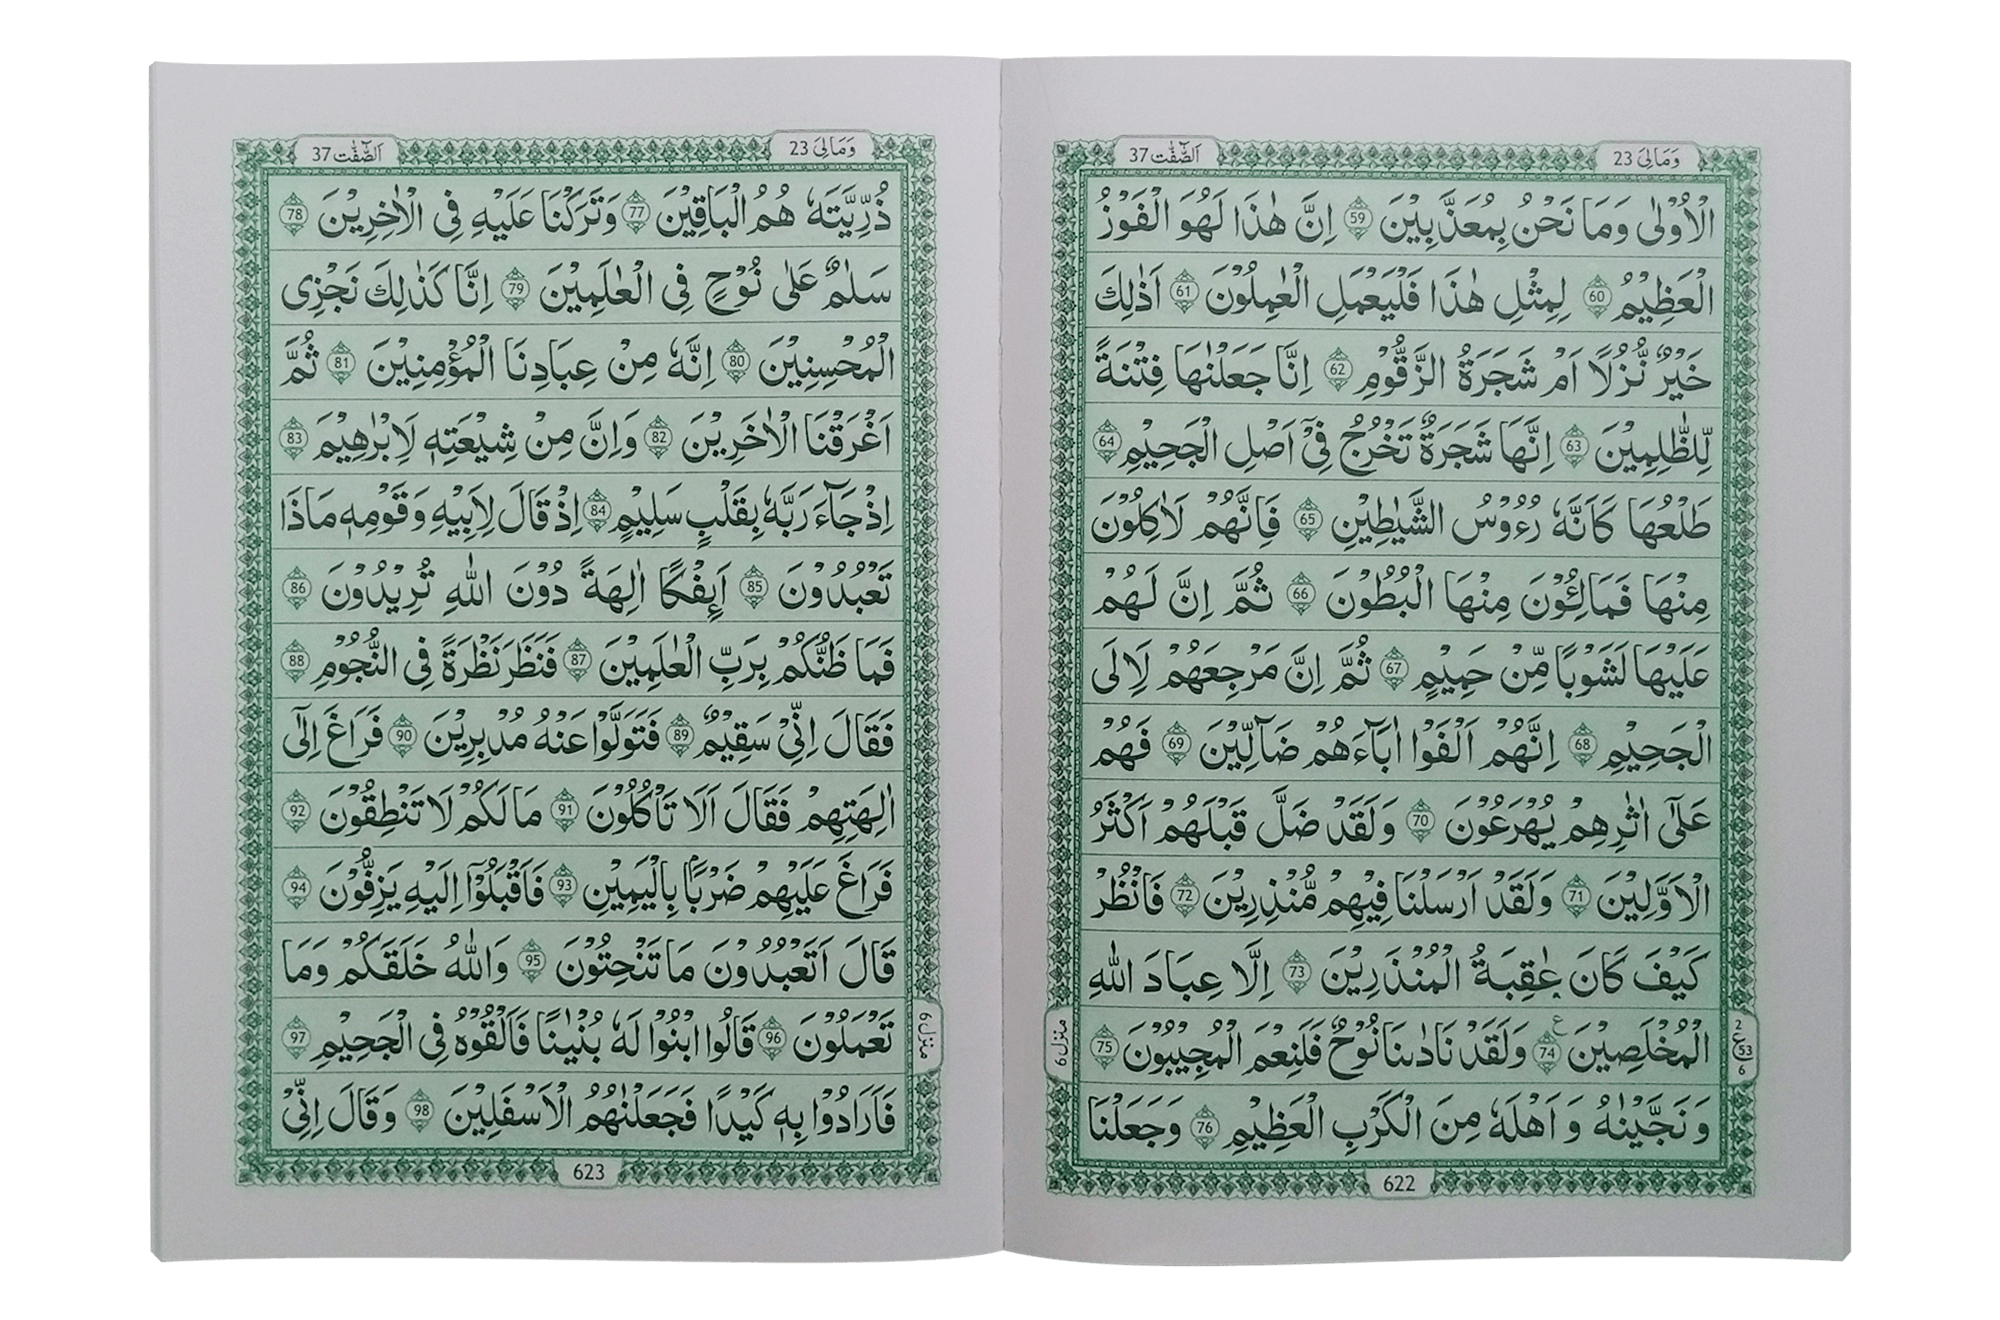 وَمَالِیَ 23
اَلصّٰٓفّٰت 37
الْاُوْلٰى وَمَا نَحْنُ بِمُعَذَّبِيْنَ 59 اِنَّ هٰذَا لَهُوَ الْفَوْزُ
الْعَظِيْمُ 60 لِمِثْلِ هٰذَا فَلْيَعْمَلِ الْعٰمِلُوْنَ 61 اَذٰلِكَ
خَيْرٌ نُّزُلًا اَمْ شَجَرَةُ الزَّقُّوْمِ 62 اِنَّا جَعَلْنٰهَا فِتْنَةً
لِّلظّٰلِمِيْنَ 63 اِنَّهَا شَجَرَةٌ تَخْرُجُ فِیْۤ اَصْلِ الْجَحِيْمِ 64
طَلْعُهَا كَاَنَّهٗ رُءُوْسُ الشَّيٰطِيْنِ 65 فَاِنَّهُمْ لَاٰكِلُوْنَ
مِنْهَا فَمَالِـُٔوْنَ مِنْهَا الْبُطُوْنَ 66 ثُمَّ اِنَّ لَهُمْ
عَلَيْهَا لَشَوْبًا مِّنْ حَمِيْمٍ 67 ثُمَّ اِنَّ مَرْجِعَهُمْ لَاِلَى
الْجَحِيْمِ 68 اِنَّهُمْ اَلْفَوْا اٰبَآءَهُمْ ضَآلِّيْنَ 69 فَهُمْ
عَلٰٓى اٰثٰرِهِمْ يُهْرَعُوْنَ 70 وَلَقَدْ ضَلَّ قَبْلَهُمْ اَكْثَرُ
الْاَوَّلِيْنَ 71 وَلَقَدْ اَرْسَلْنَا فِيْهِمْ مُّنْذِرِيْنَ 72 فَانْظُرْ
كَيْفَ كَانَ عٰقِبَةُ الْمُنْذَرِيْنَ 73 اِلَّا عِبَادَ اللّٰهِ
الْمُخْلَصِيْنَ 74 ع وَلَقَدْ نَادٰىنَا نُوْحٌ فَلَنِعْمَ الْمُجِيْبُوْنَ 75
وَنَجَّيْنٰهُ وَاَهْلَهٗ مِنَ الْكَرْبِ الْعَظِيْمِ 76 وَجَعَلْنَا
2
ع 53
6
منزل 6
622
وَمَالِیَ 23
اَلصّٰٓفّٰت 37
ذُرِّيَّتَهٗ هُمُ الْبَاقِيْنَ 77 وَتَرَكْنَا عَلَيْهِ فِى الْاٰخِرِيْنَ 78
سَلٰمٌ عَلٰى نُوْحٍ فِى الْعٰلَمِيْنَ 79 اِنَّا كَذٰلِكَ نَجْزِى
الْمُحْسِنِيْنَ 80 اِنَّهٗ مِنْ عِبَادِنَا الْمُؤْمِنِيْنَ 81 ثُمَّ
اَغْرَقْنَا الْاٰخَرِيْنَ 82 وَاِنَّ مِنْ شِيْعَتِهٖ لَاِبْرٰهِيْمَ 83
اِذْ جَآءَ رَبَّهٗ بِقَلْبٍ سَلِيْمٍ 84 اِذْ قَالَ لِاَبِيْهِ وَقَوْمِهٖ مَاذَا
تَعْبُدُوْنَ 85 اَئِفْكًا اٰلِهَةً دُوْنَ اللّٰهِ تُرِيْدُوْنَ 86
فَمَا ظَنُّكُمْ بِرَبِّ الْعٰلَمِيْنَ 87 فَنَظَرَ نَظْرَةً فِى النُّجُوْمِ 88
فَقَالَ اِنِّىْ سَقِيْمٌ 89 فَتَوَلَّوْا عَنْهُ مُدْبِرِيْنَ 90 فَرَاغَ اِلٰٓى
اٰلِهَتِهِمْ فَقَالَ اَلَا تَاْكُلُوْنَ 91 مَا لَكُمْ لَا تَنْطِقُوْنَ 92
فَرَاغَ عَلَيْهِمْ ضَرْبًۢا بِالْيَمِيْنِ 93 فَاَقْبَلُوْٓا اِلَيْهِ يَزِفُّوْنَ 94
قَالَ اَتَعْبُدُوْنَ مَا تَنْحِتُوْنَ 95 وَاللّٰهُ خَلَقَكُمْ وَمَا
تَعْمَلُوْنَ 96 قَالُوا ابْنُوْا لَهٗ بُنْيٰنًا فَاَلْقُوْهُ فِى الْجَحِيْمِ 97
فَاَرَادُوْا بِهٖ كَيْدًا فَجَعَلْنٰهُمُ الْاَسْفَلِيْنَ 98 وَقَالَ اِنِّىْ
منزل 6
623